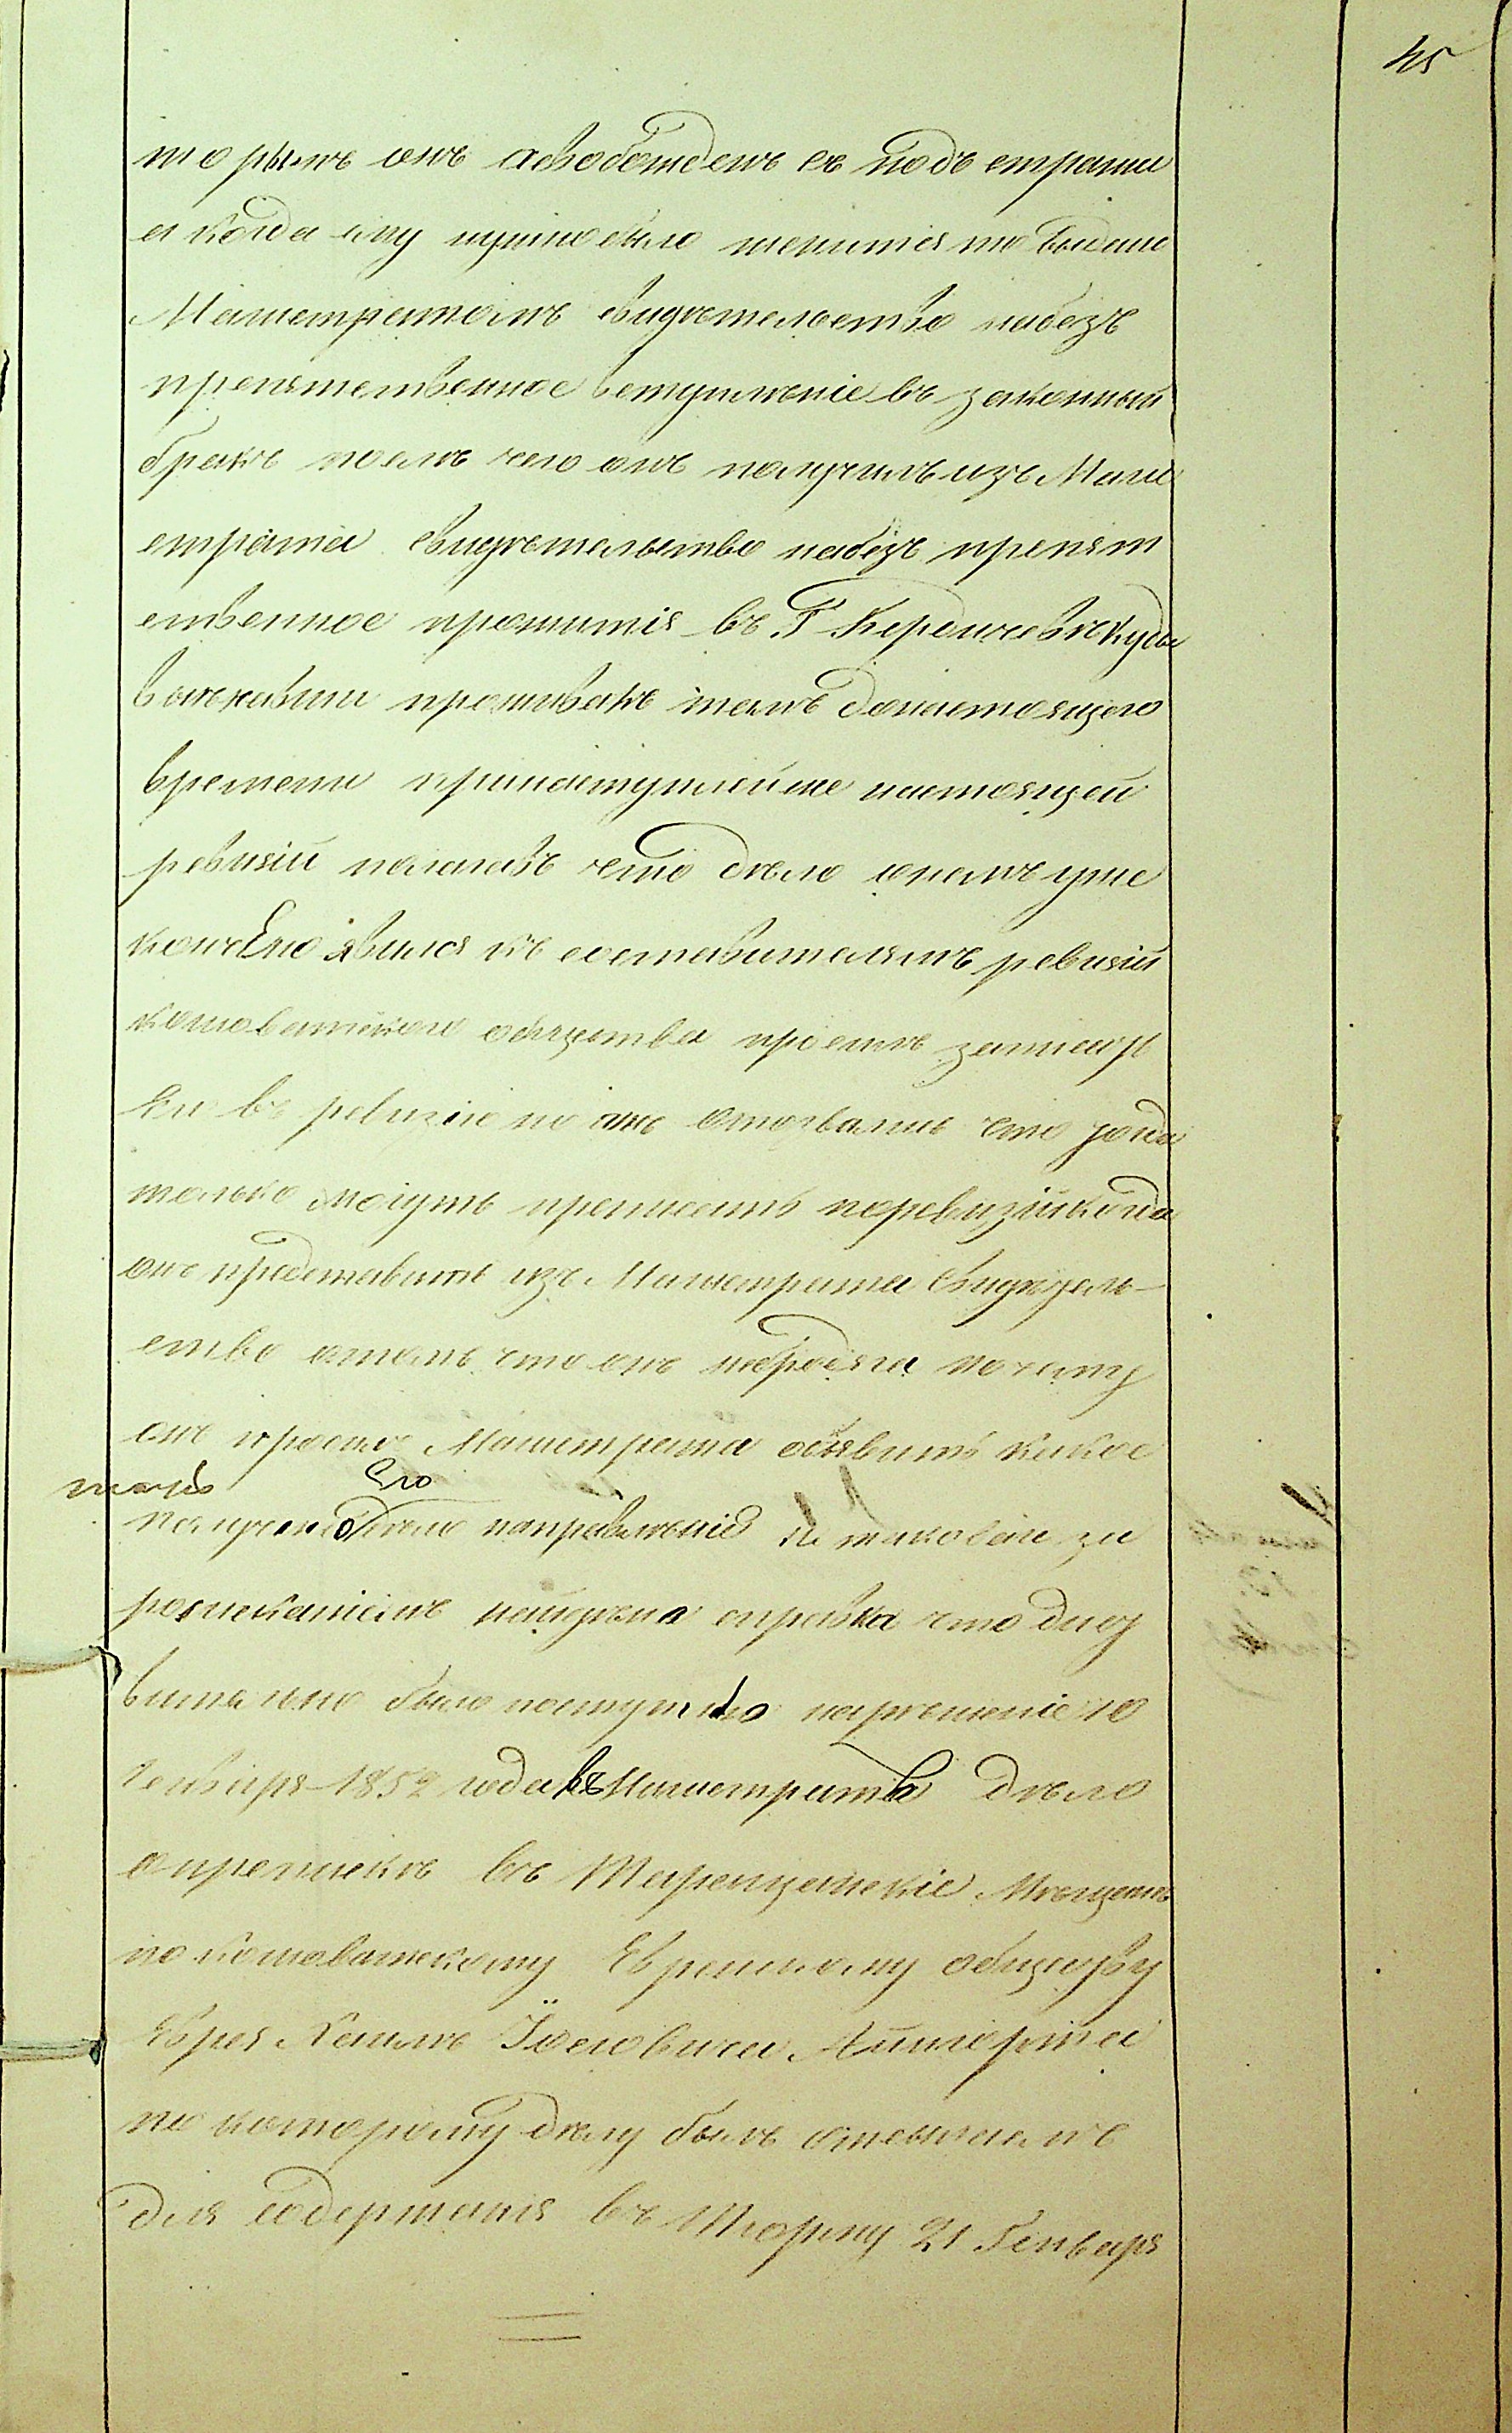 45
торымъ онъ освобожденъ съ подъ стражи
а когда ему нужно было женится то выдано
Магистратомъ свидѣтельство набезъ
препятственное вступленіе въ законный
бракъ послѣ чего онъ получилъ изъ Маги
страта свидѣтельство набезъ препят
ственное прожитія въ Г.
выехавши проживалъ тамъ донастоящего
времени принаступленіи настоящей
ревизіи полагавъ что дѣло онемъ уже
кончено явился къ составителямъ ревизіи
кошоватского общества просилъ записать
его въ ревизію но они отозвались что тогда
только могутъ приписать поревизіи когда
онъ представитъ изъ Магистрата свидѣтель-
ство отомъ что онъ небродяга почему
онъ просилъ Магистрата объявить какое
Его
получено дѣло направленіе а таковой за
розысканіемъ найдена справка что
было поступило нарешеніе 10
Генваря 1852 года въ Магистратъ дѣло
опрепискѣ въ Таращанскіе Мѣщане
по кошоватскому Еврейскому обществу
Еврея Хаима Іосіовича
по которому дѣлу былъ отсылаемъ
для содержанія въ Тюрму 21 Генваря